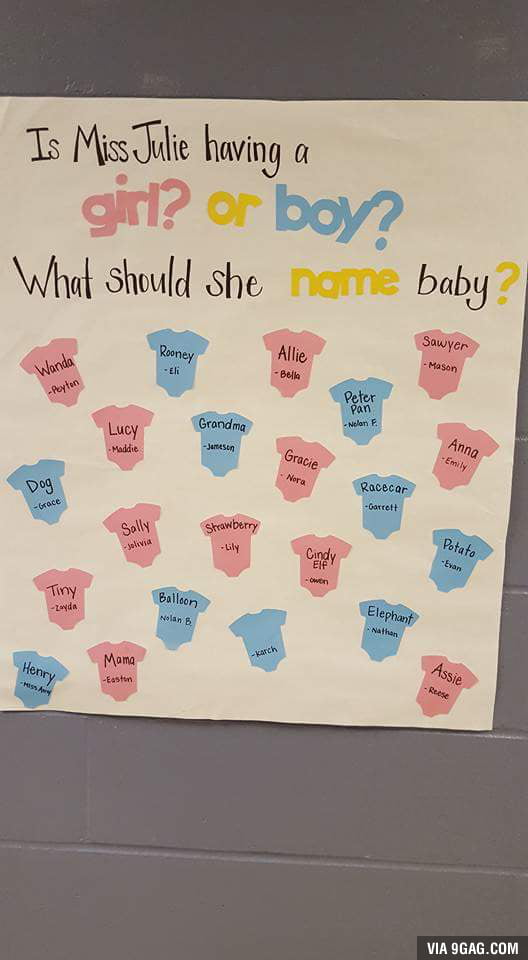 Is Miss Julie having a
girl? or boy?
What should she name baby?
Wanda
-Peyton
Rooney
- Eli
Allie
- Bella
Sawyer
- Mason
Peter
Pan
- Nolan F.
Lucy
- Maddie
Grandma
-Jameson
Gracie
- Nora
Anna
- Emily
Dog
- Grace
Racecar
- Garrett
Sally
- Jolivia
Strawberry
- Lily
Cindy
Elf
- owen
Potato
- Evan
Tiny
- Zayda
Balloon
Nolan B.
- Karch
Elephant
- Nathan
Henry
- Miss Amy
Mama
- Easton
Assie
- Reese
VIA 9GAG.COM